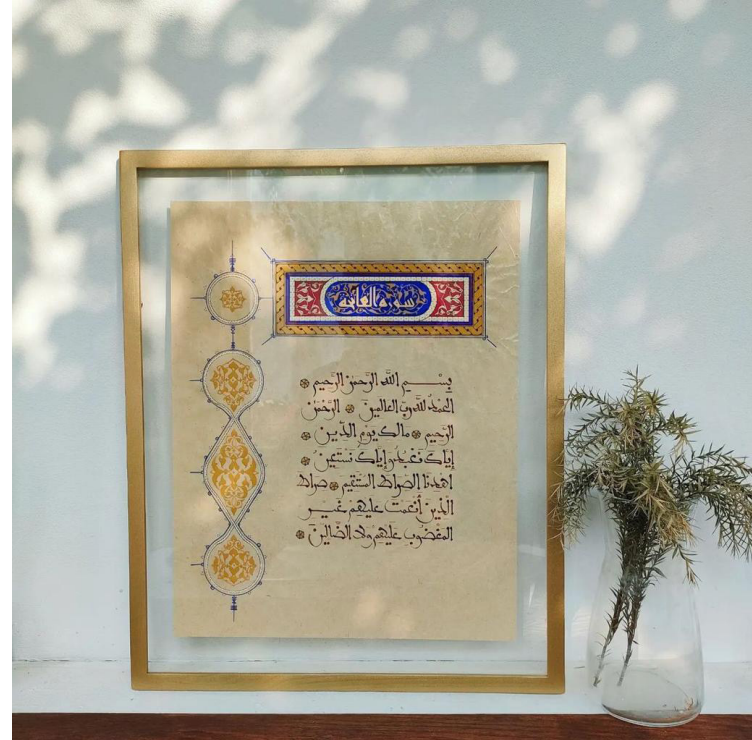 سورة الفاتحة
بِسْمِ اللَّهِ الرَّحْمَٰنِ الرَّحِيمِ
الحَمْدُ لله رَبِّ العالمين الرَّحْمَٰن
الرَّحِيم مالك يَوْمِ الدِّين
إياك نَعْبُد وإياك نَسْتَعِينُ
اهدنا الصراط المستقيم صراط
الذين أنعمت عليهم غير
المغضوب عليهم ولا الضالين